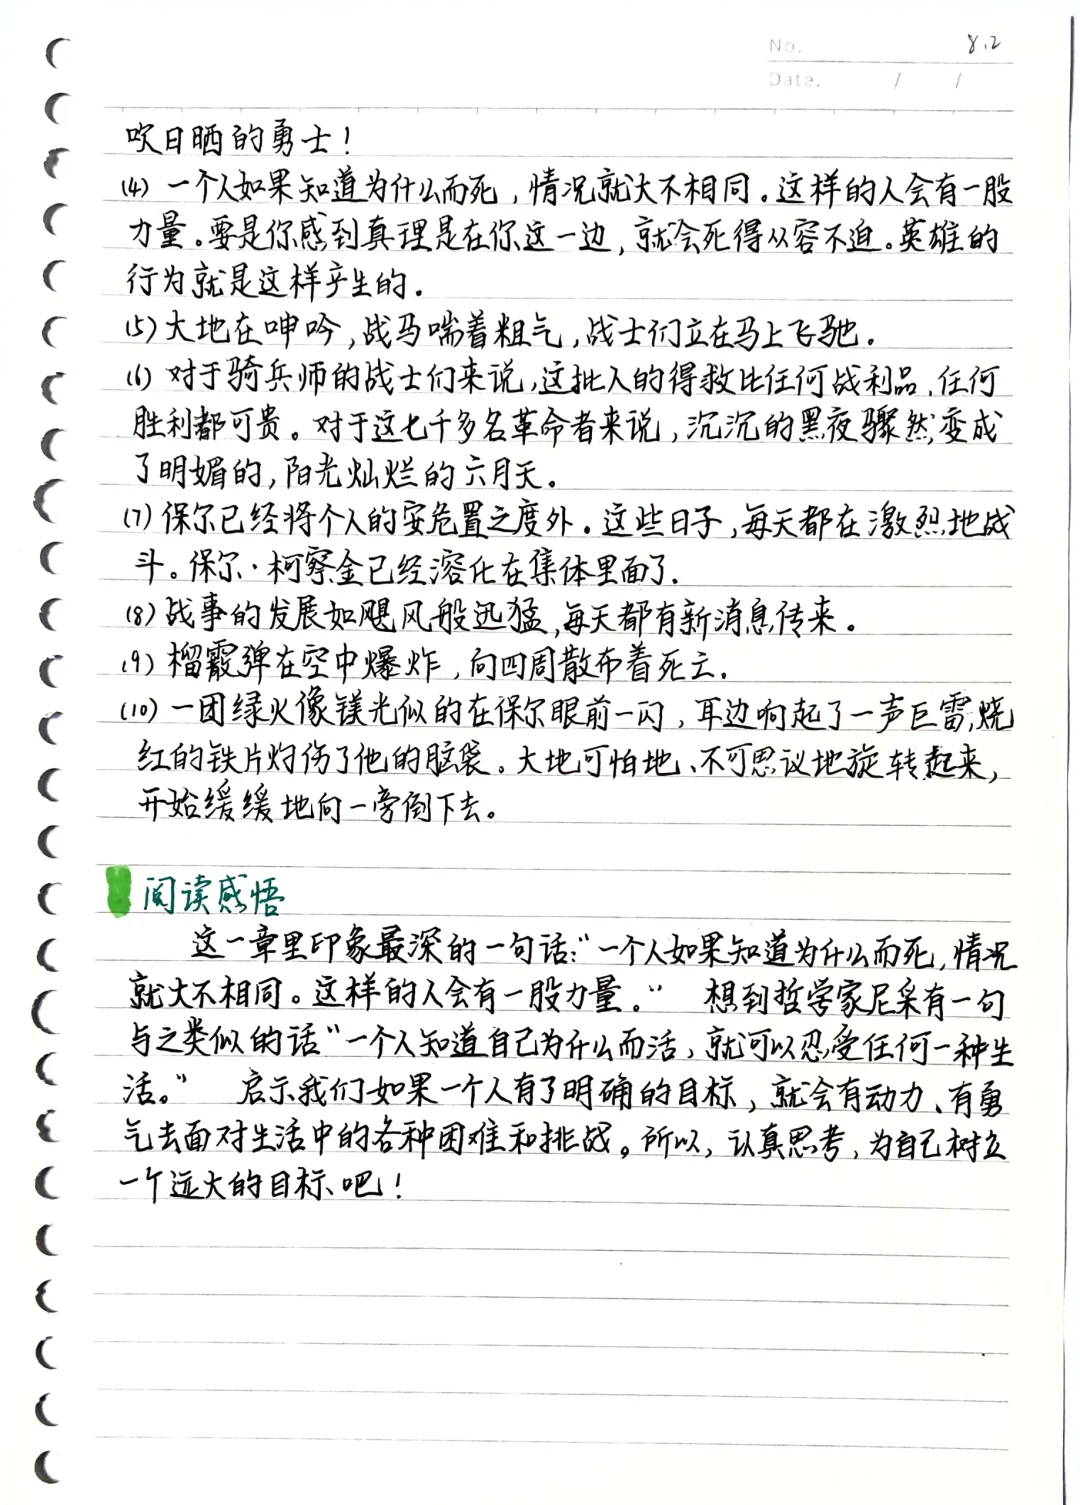 No. 8.2
Date. / /
吹日晒的勇士！
(4) 一个人如果知道为什么而死，情况就大不相同。这样的人会有一股
力量。要是你感到真理是在你这一边，就会死得从容不迫。英雄的
行为就是这样产生的。
(5) 大地在呻吟，战马喘着粗气，战士们立在马上飞驰。
(6) 对于骑兵师的战士们来说，这批人的得救比任何战利品、任何
胜利都可贵。对于这七千多名革命者来说，沉沉的黑夜骤然变成
了明媚的，阳光灿烂的六月天。
(7) 保尔已经将个人的安危置之度外。这些日子，每天都在激烈地战
斗。保尔·柯察金已经溶化在集体里面了。
(8) 战事的发展如飓风般迅猛，每天都有新消息传来。
(9) 榴霰弹在空中爆炸，向四周散布着死亡。
(10) 一团绿火像镁光似的在保尔眼前一闪，耳边响起了一声巨雷，烧
红的铁片灼伤了他的脑袋。大地可怕地、不可思议地旋转起来，
开始缓缓地向一旁倒下去。
阅读感悟
这一章里印象最深的一句话：“一个人如果知道为什么而死，情况
就大不相同。这样的人会有一股力量。” 想到哲学家尼采有一句
与之类似的话“一个人知道自己为什么而活，就可以忍受任何一种生
活。” 启示我们如果一个人有了明确的目标，就会有动力、有勇
气去面对生活中的各种困难和挑战。所以，认真思考，为自己树立
一个远大的目标吧！